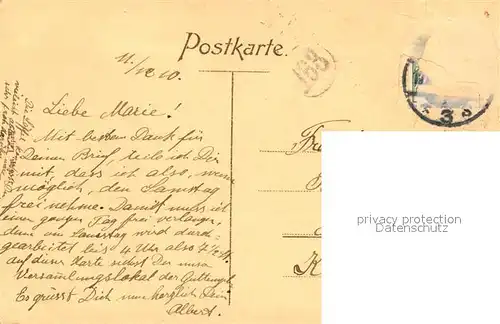 Postkarte.
11/12 10.
168
Liebe Marie!
Mit bestem Dank für
Deinen Brief, teile ich Dir
mit, dass ich also, wenn
möglich, den Samstag
frei nehme. Damit muss ich
einen ganzen Tag frei verlangen,
denn am Samstag wird durch-
gearbeitet bis 4 Uhr also 7½ St.
auf dieser Karte siehst Du unser
Versammlungslokal der Guttempl.
Es grüsst Dich nun herzlich Dein
Albert.
3
privacy protection
watermark